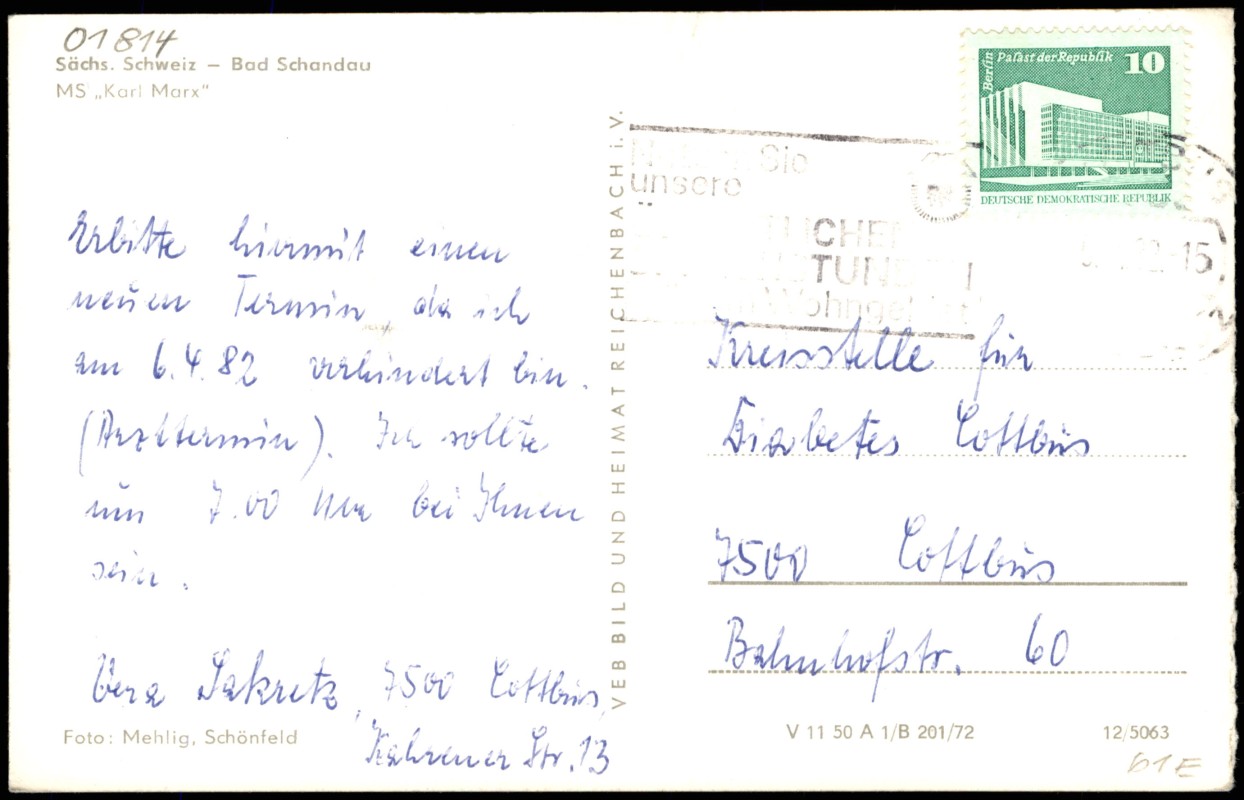 01814
Sächs. Schweiz – Bad Schandau
MS „Karl Marx"
Erbitte hiermit einen
neuen Termin, da ich
am 6.4.82 verhindert bin.
(Arzttermin). Ich sollte
um 7.00 Uhr bei Ihnen
sein.
Vera Sakretz, 7500 Cottbus,
Kahrener Str. 13
Foto: Mehlig, Schönfeld
VEB BILD UND HEIMAT REICHENBACH i.V.
Berlin Palast der Republik 10
DEUTSCHE DEMOKRATISCHE REPUBLIK
Sie
unsere
Kreisstelle für
Diabetes Cottbus
7500 Cottbus
Bahnhofstr. 60
V 11 50 A 1/B 201/72 12/5063